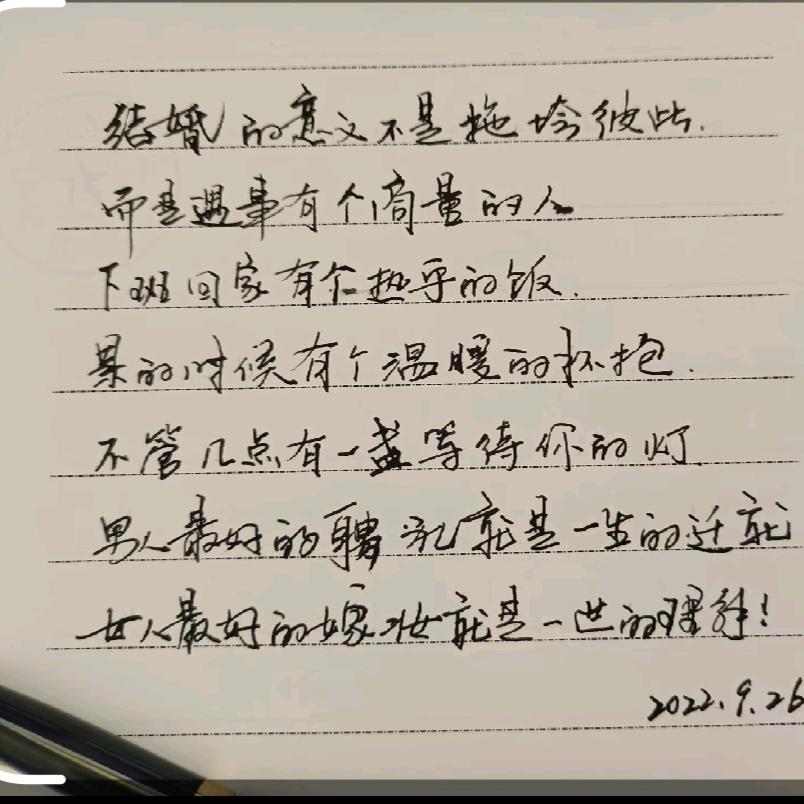 结婚的意义不是拖垮彼此.
而是遇事有个商量的人
下班回家有个热乎的饭.
累的时候有个温暖的怀抱.
不管几点有一盏等待你的灯.
男人最好的聘礼就是一生的迁就
女人最好的嫁妆就是一世的理解!
2022.9.26